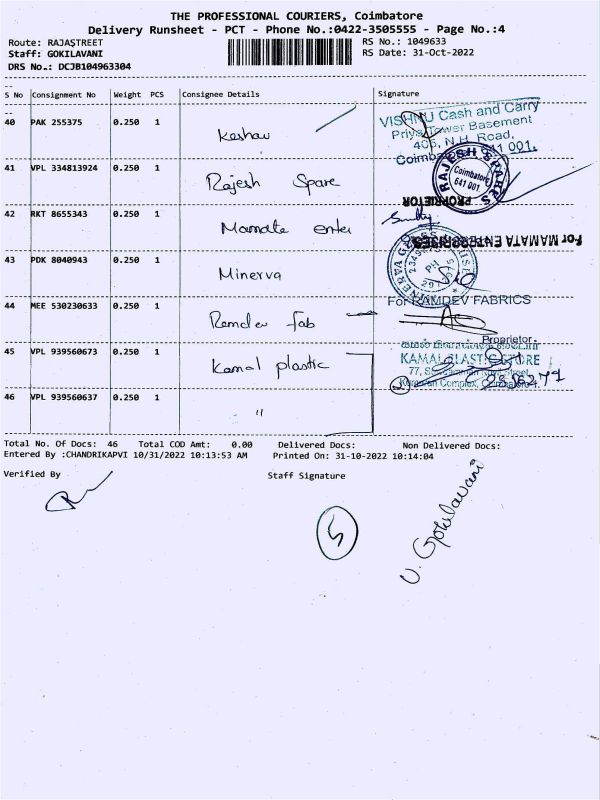 THE PROFESSIONAL COURIERS, Coimbatore
Delivery Runsheet - PCT - Phone No.:0422-3505555 - Page No.:4
Route: RAJASTREET
RS No.: 1049633
Staff: GOKILAVANI
RS Date: 31-Oct-2022
DRS No.: DCJB104963304
S No Consignment No Weight PCS Consignee Details Signature
40 PAK 255375 0.250 1 Keshav
VISHNU Cash and Carry
Priya Tower Basement
405, N.H. Road,
41 VPL 334813924 0.250 1 Rajesh Spare
RAJESH SPARES
Coimbatore
641 001.
PROPRIETOR
42 RKT 8655343 0.250 1 Mamata enter
For MAMATA ENTERPRISES
43 PDK 8040943 0.250 1 Minerva
44 MEE 530230633 0.250 1 Ramdev fab
For RAMDEV FABRICS
Proprietor
45 VPL 939560673 0.250 1 Kamal plastic
46 VPL 939560637 0.250 1 "
Total No. Of Docs: 46 Total COD Amt: 0.00 Delivered Docs: Non Delivered Docs:
Entered By :CHANDRIKAPVI 10/31/2022 10:13:53 AM Printed On: 31-10-2022 10:14:04
Verified By Staff Signature
5
V. Gokilavani